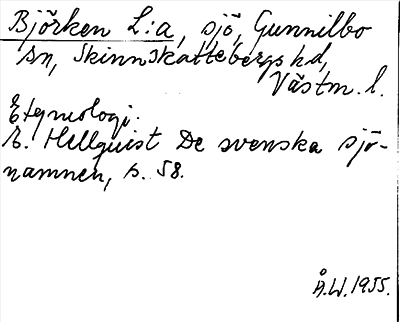 Björken L:a, sjö, Gunnilbo
sn, Skinnskattebergs hd,
Västm. l.
Etymologi.
E. Hellquist De svenska sjö-
namnen, s. 58.
Å.W. 1955.